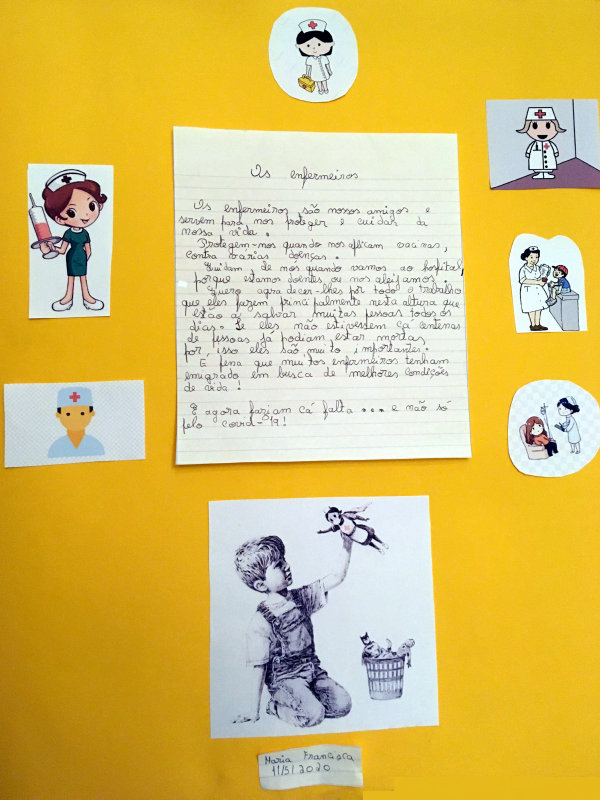 Os enfermeiros
Os enfermeiros são nossos amigos e
servem para nos proteger e cuidar da
nossa vida.
Protegem-nos quando nos aplicam vacinas,
contra várias doenças.
Cuidam, de nós quando vamos ao hospital,
porque estamos doentes ou nos aleijamos.
Quero agradecer-lhes por todo o trabalho
que eles fazem principalmente nesta altura que
estão a salvar muitas pessoas todos os
dias. Se eles não estivessem cá centenas
de pessoas já podiam estar mortas
por, isso eles são muito importantes.
É pena que muitos enfermeiros tenham
emigrado em busca de melhores condições
de vida!
E agora faziam cá falta... e não só
pelo covid-19!
Maria Francisca
11/5/2020